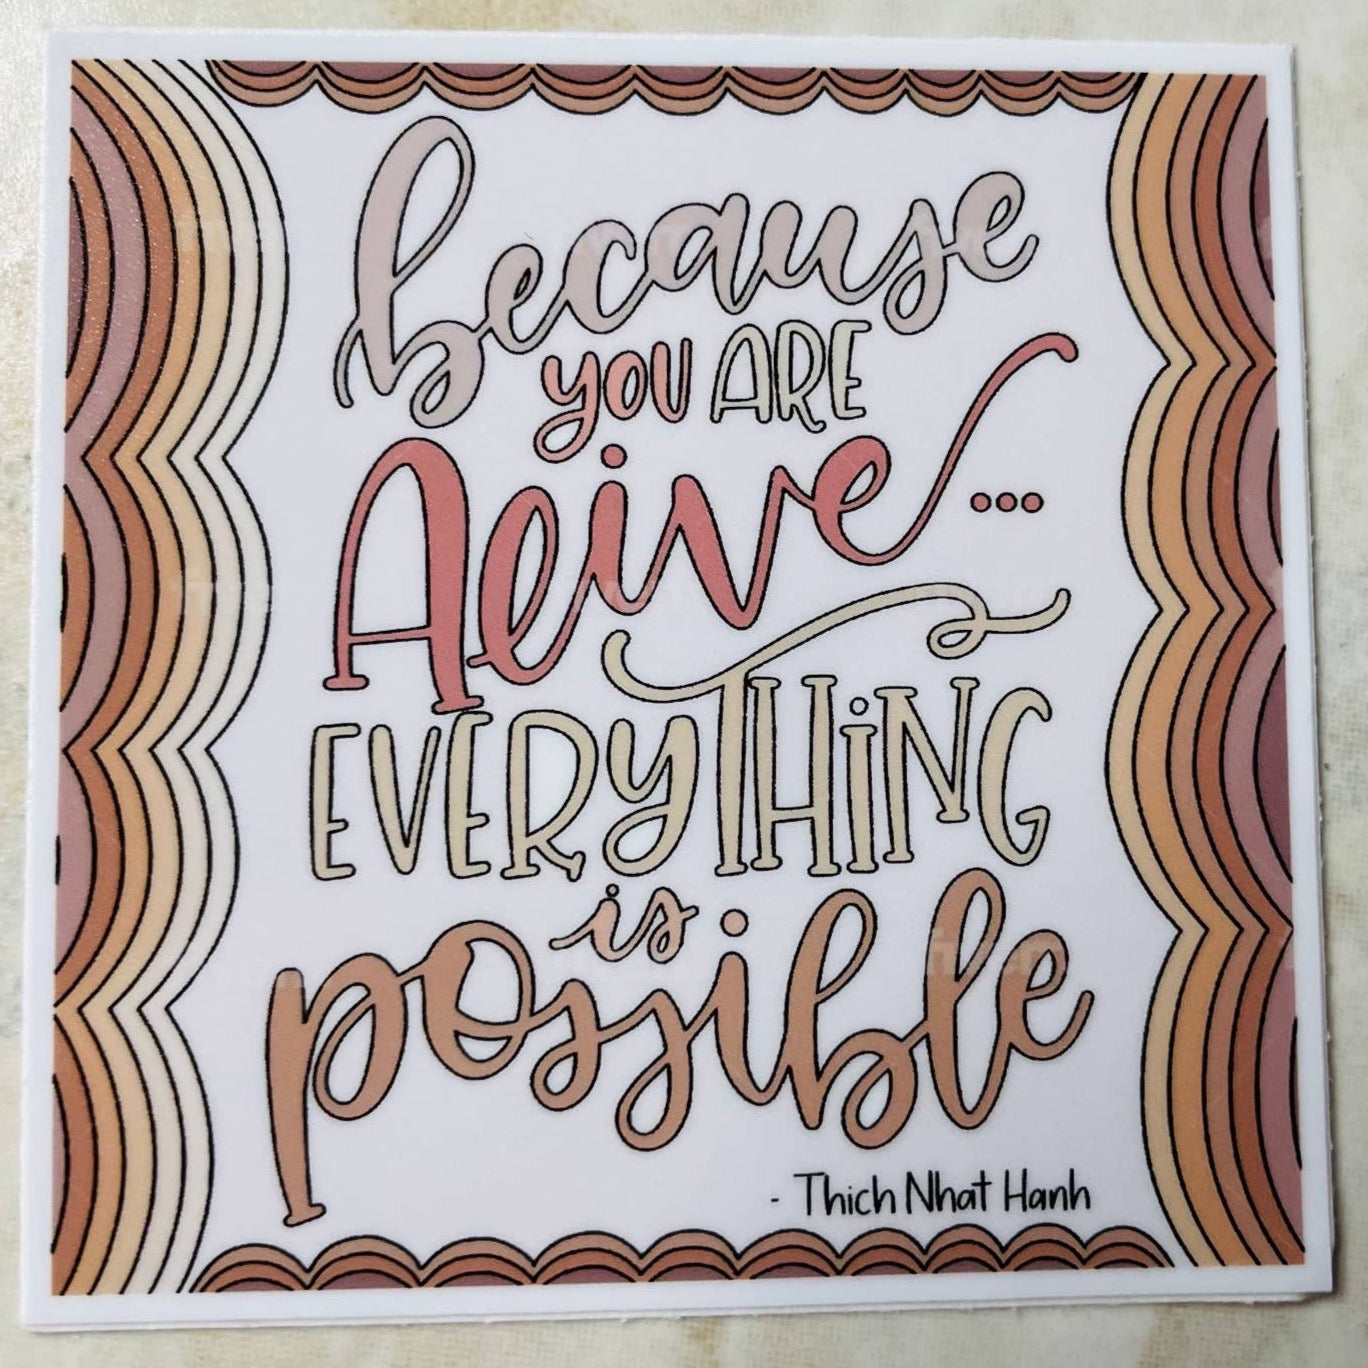 because
YOU ARE
Alive...
EVERYTHiNG
is
possible
- Thich Nhat Hanh